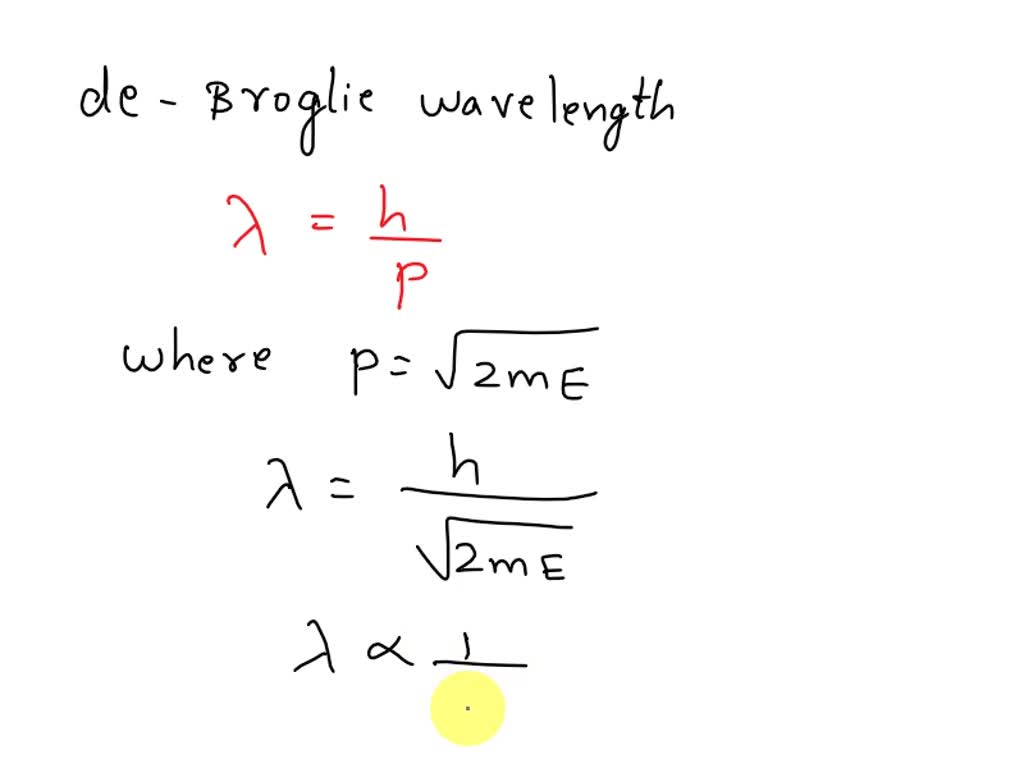 de - Broglie wavelength
λ = h/p
where p = √2mE
λ = h/√2mE
λ ∝ 1/